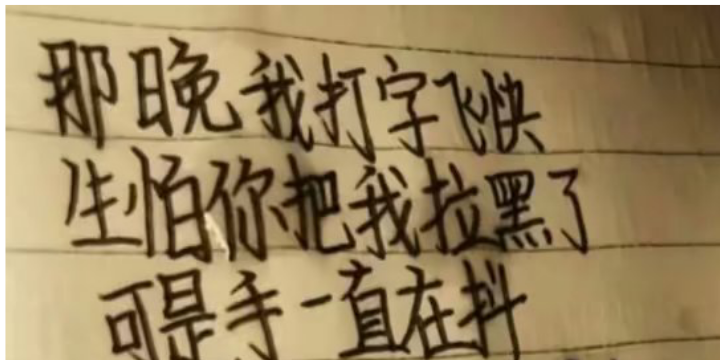 那晚我打字飞快
生怕你把我拉黑了
可是手一直在抖